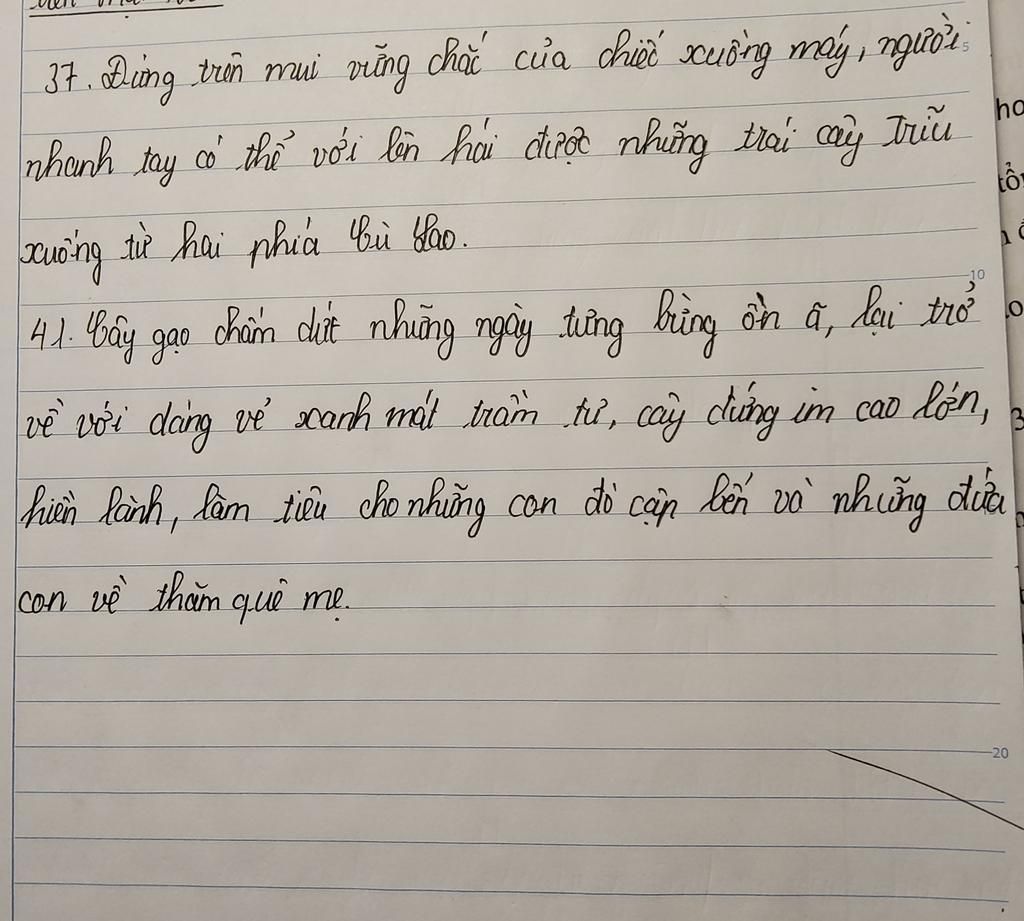 37. Đứng trên mui vững chắc của chiếc xuồng máy, người
nhanh tay có thể với lên hái được những trái cây trĩu
xuống từ hai phía cù lao.
41. Cây gạo chấm dứt những ngày tưng bừng ồn ã, lại trở
về với dáng vẻ xanh mát trầm tư, cây đứng im cao lớn,
hiền lành, làm tiêu cho những con đò cập bến và những đứa
con về thăm quê mẹ.
5
10
20